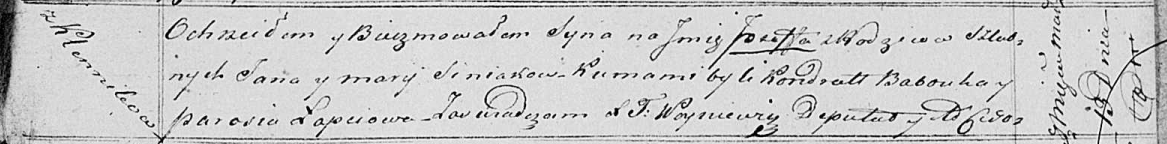 z Klennikow
Ochrzciłem y Birzmowałem Syna na Jmię Jozeffa z Rodzicow Szlub-
nych Jana y maryi Siniakow - Kumami byli Kondratt Babouka y
parasia Łapciowa - Zaswiadczam X T. Woyniewicz Deputat y
19 Dnia